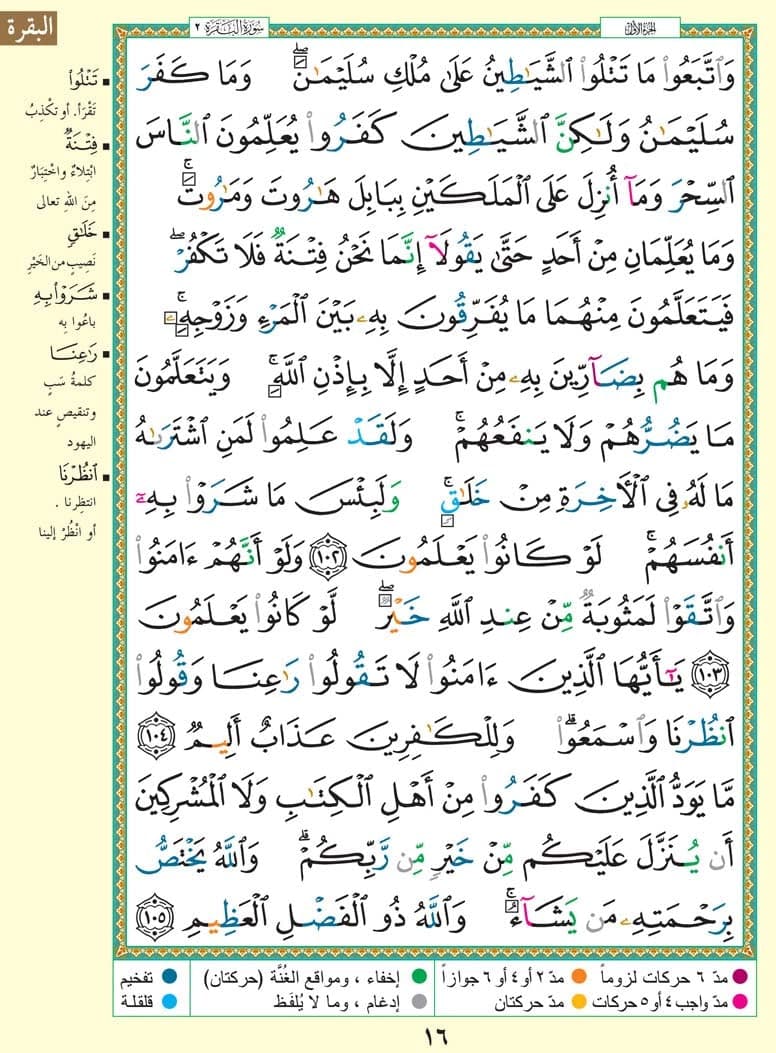 البقرة
سُورَةُ الْبَقَرَةِ ٢
الجُزءُ الأوّلُ
وَٱتَّبَعُوا۟ مَا تَتْلُوا۟ ٱلشَّيَـٰطِينُ عَلَىٰ مُلْكِ سُلَيْمَـٰنَ ۖ وَمَا كَفَرَ
سُلَيْمَـٰنُ وَلَـٰكِنَّ ٱلشَّيَـٰطِينَ كَفَرُوا۟ يُعَلِّمُونَ ٱلنَّاسَ
ٱلسِّحْرَ وَمَآ أُنزِلَ عَلَى ٱلْمَلَكَيْنِ بِبَابِلَ هَـٰرُوتَ وَمَـٰرُوتَ ۚ
وَمَا يُعَلِّمَانِ مِنْ أَحَدٍ حَتَّىٰ يَقُولَآ إِنَّمَا نَحْنُ فِتْنَةٌ فَلَا تَكْفُرْ ۖ
فَيَتَعَلَّمُونَ مِنْهُمَا مَا يُفَرِّقُونَ بِهِۦ بَيْنَ ٱلْمَرْءِ وَزَوْجِهِۦ ۚ
وَمَا هُم بِضَآرِّينَ بِهِۦ مِنْ أَحَدٍ إِلَّا بِإِذْنِ ٱللَّهِ ۚ وَيَتَعَلَّمُونَ
مَا يَضُرُّهُمْ وَلَا يَنفَعُهُمْ ۚ وَلَقَدْ عَلِمُوا۟ لَمَنِ ٱشْتَرَىٰهُ
مَا لَهُۥ فِى ٱلْـَٔاخِرَةِ مِنْ خَلَـٰقٍ ۚ وَلَبِئْسَ مَا شَرَوْا۟ بِهِۦٓ
أَنفُسَهُمْ ۚ لَوْ كَانُوا۟ يَعْلَمُونَ ١٠٢ وَلَوْ أَنَّهُمْ ءَامَنُوا۟
وَٱتَّقَوْا۟ لَمَثُوبَةٌ مِّنْ عِندِ ٱللَّهِ خَيْرٌ ۖ لَّوْ كَانُوا۟ يَعْلَمُونَ
١٠٣ يَـٰٓأَيُّهَا ٱلَّذِينَ ءَامَنُوا۟ لَا تَقُولُوا۟ رَٰعِنَا وَقُولُوا۟
ٱنظُرْنَا وَٱسْمَعُوا۟ ۗ وَلِلْكَـٰفِرِينَ عَذَابٌ أَلِيمٌ ١٠٤
مَّا يَوَدُّ ٱلَّذِينَ كَفَرُوا۟ مِنْ أَهْلِ ٱلْكِتَـٰبِ وَلَا ٱلْمُشْرِكِينَ
أَن يُنَزَّلَ عَلَيْكُم مِّنْ خَيْرٍ مِّن رَّبِّكُمْ ۗ وَٱللَّهُ يَخْتَصُّ
بِرَحْمَتِهِۦ مَن يَشَآءُ ۚ وَٱللَّهُ ذُو ٱلْفَضْلِ ٱلْعَظِيمِ ١٠٥
تَتْلُوا۟
تَقْرَأ. أو تكْذِبُ
فِتْنَةٌ
ابْتِلاءٌ واخْتِبَارٌ
مِنَ اللهِ تعالى
خَلَـٰقٍ
نَصِيبٍ من الخَيْرِ
شَرَوْا۟ بِهِ
باعُوا بِه
رَٰعِنَا
كلمةُ سَبٍ
وتنقيصٍ عند
اليهود
ٱنظُرْنَا
انتظِرنا .
أو انْظُرْ إلينا
مدّ ٦ حركات لزوماً
مدّ ٢ أو ٤ أو ٦ جوازاً
إخفاء ، ومواقع الغُنَّة (حركتان)
تفخيم
مدّ واجب ٤ أو ٥ حركات
مدّ حركتان
إدغام ، وما لا يُلفَظ
قلقلة
١٦